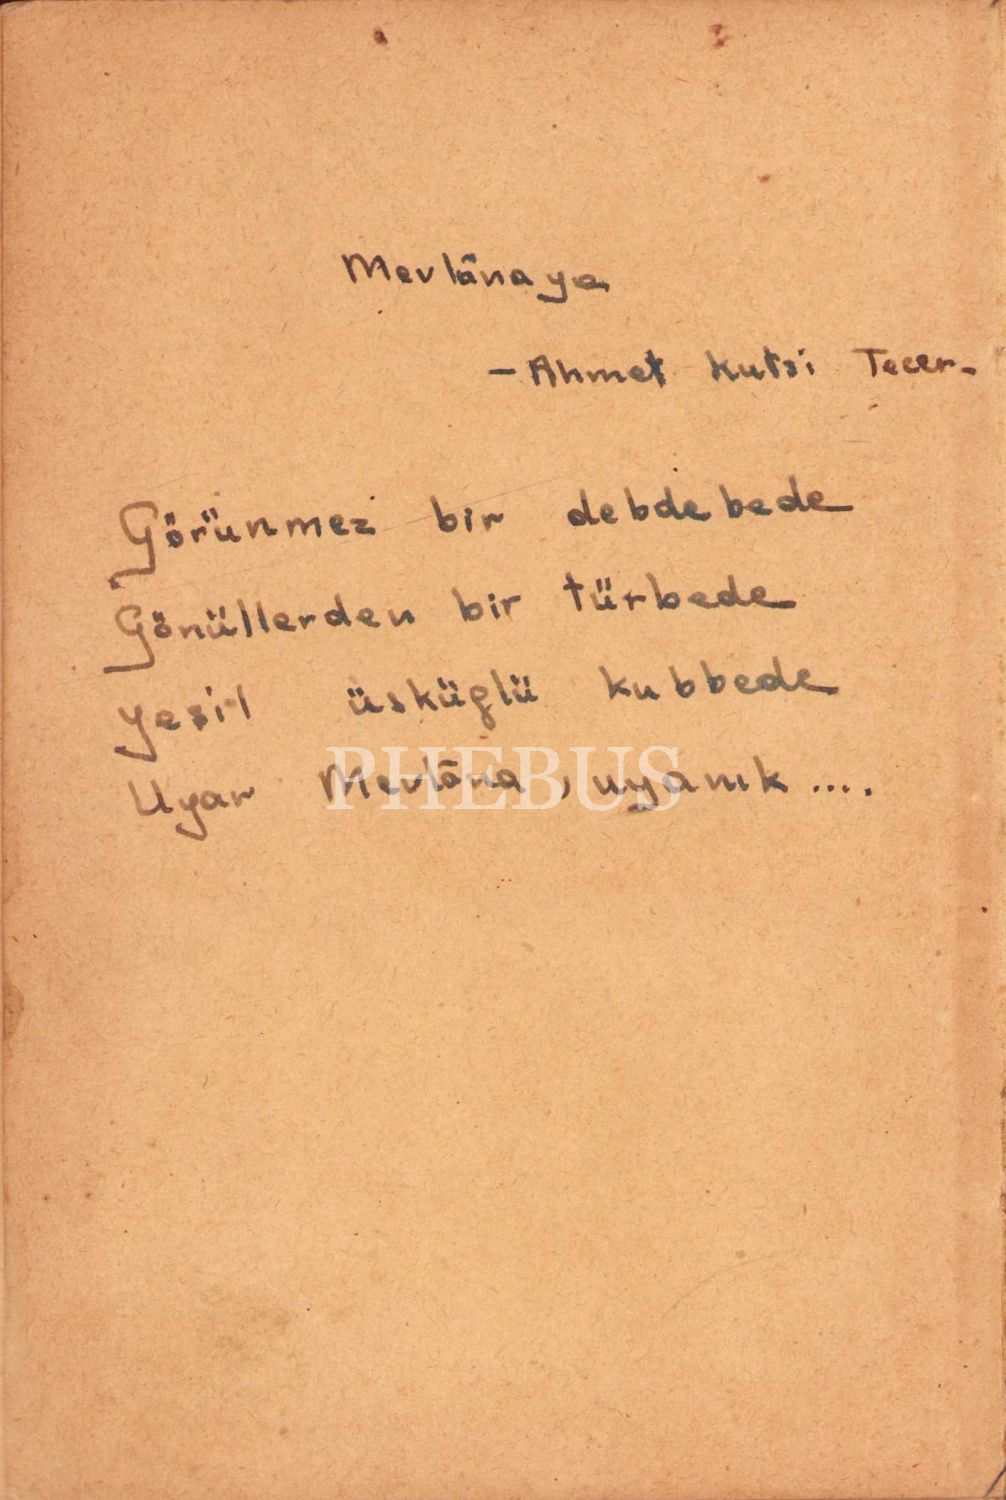 Mevlânaya
- Ahmet Kutsi Tecer -
Görünmez bir debdebede
Gönüllerden bir türbede
Yeşil üsküğlü kubbede
Uyar Mevlâna, uyanık ....
PHEBUS